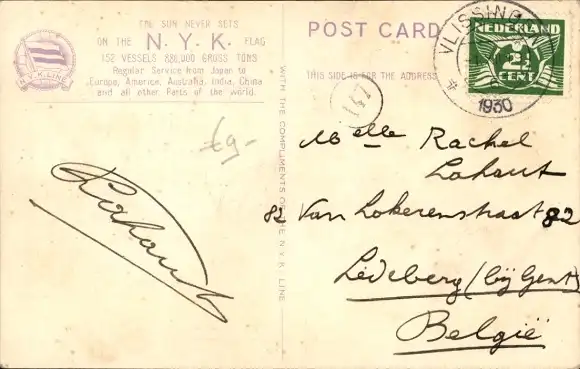 THE SUN NEVER SETS
ON THE N.Y.K. FLAG
152 VESSELS 880,000 GROSS TONS
Regular Service from Japan to
Europe, America, Australia, India, China
and all other Parts of the world.
N.Y.K. LINE
£9-
Lahaut
WITH THE COMPLIMENTS OF THE N.Y.K. LINE
POST CARD
THIS SIDE IS FOR THE ADDRESS
147
VLISSINGEN
1930
NEDERLAND
2½
CENT
Melle Rachel
Lahaut
82 Van Lokerenstraat 82
Lédeberg (bij Gent)
België